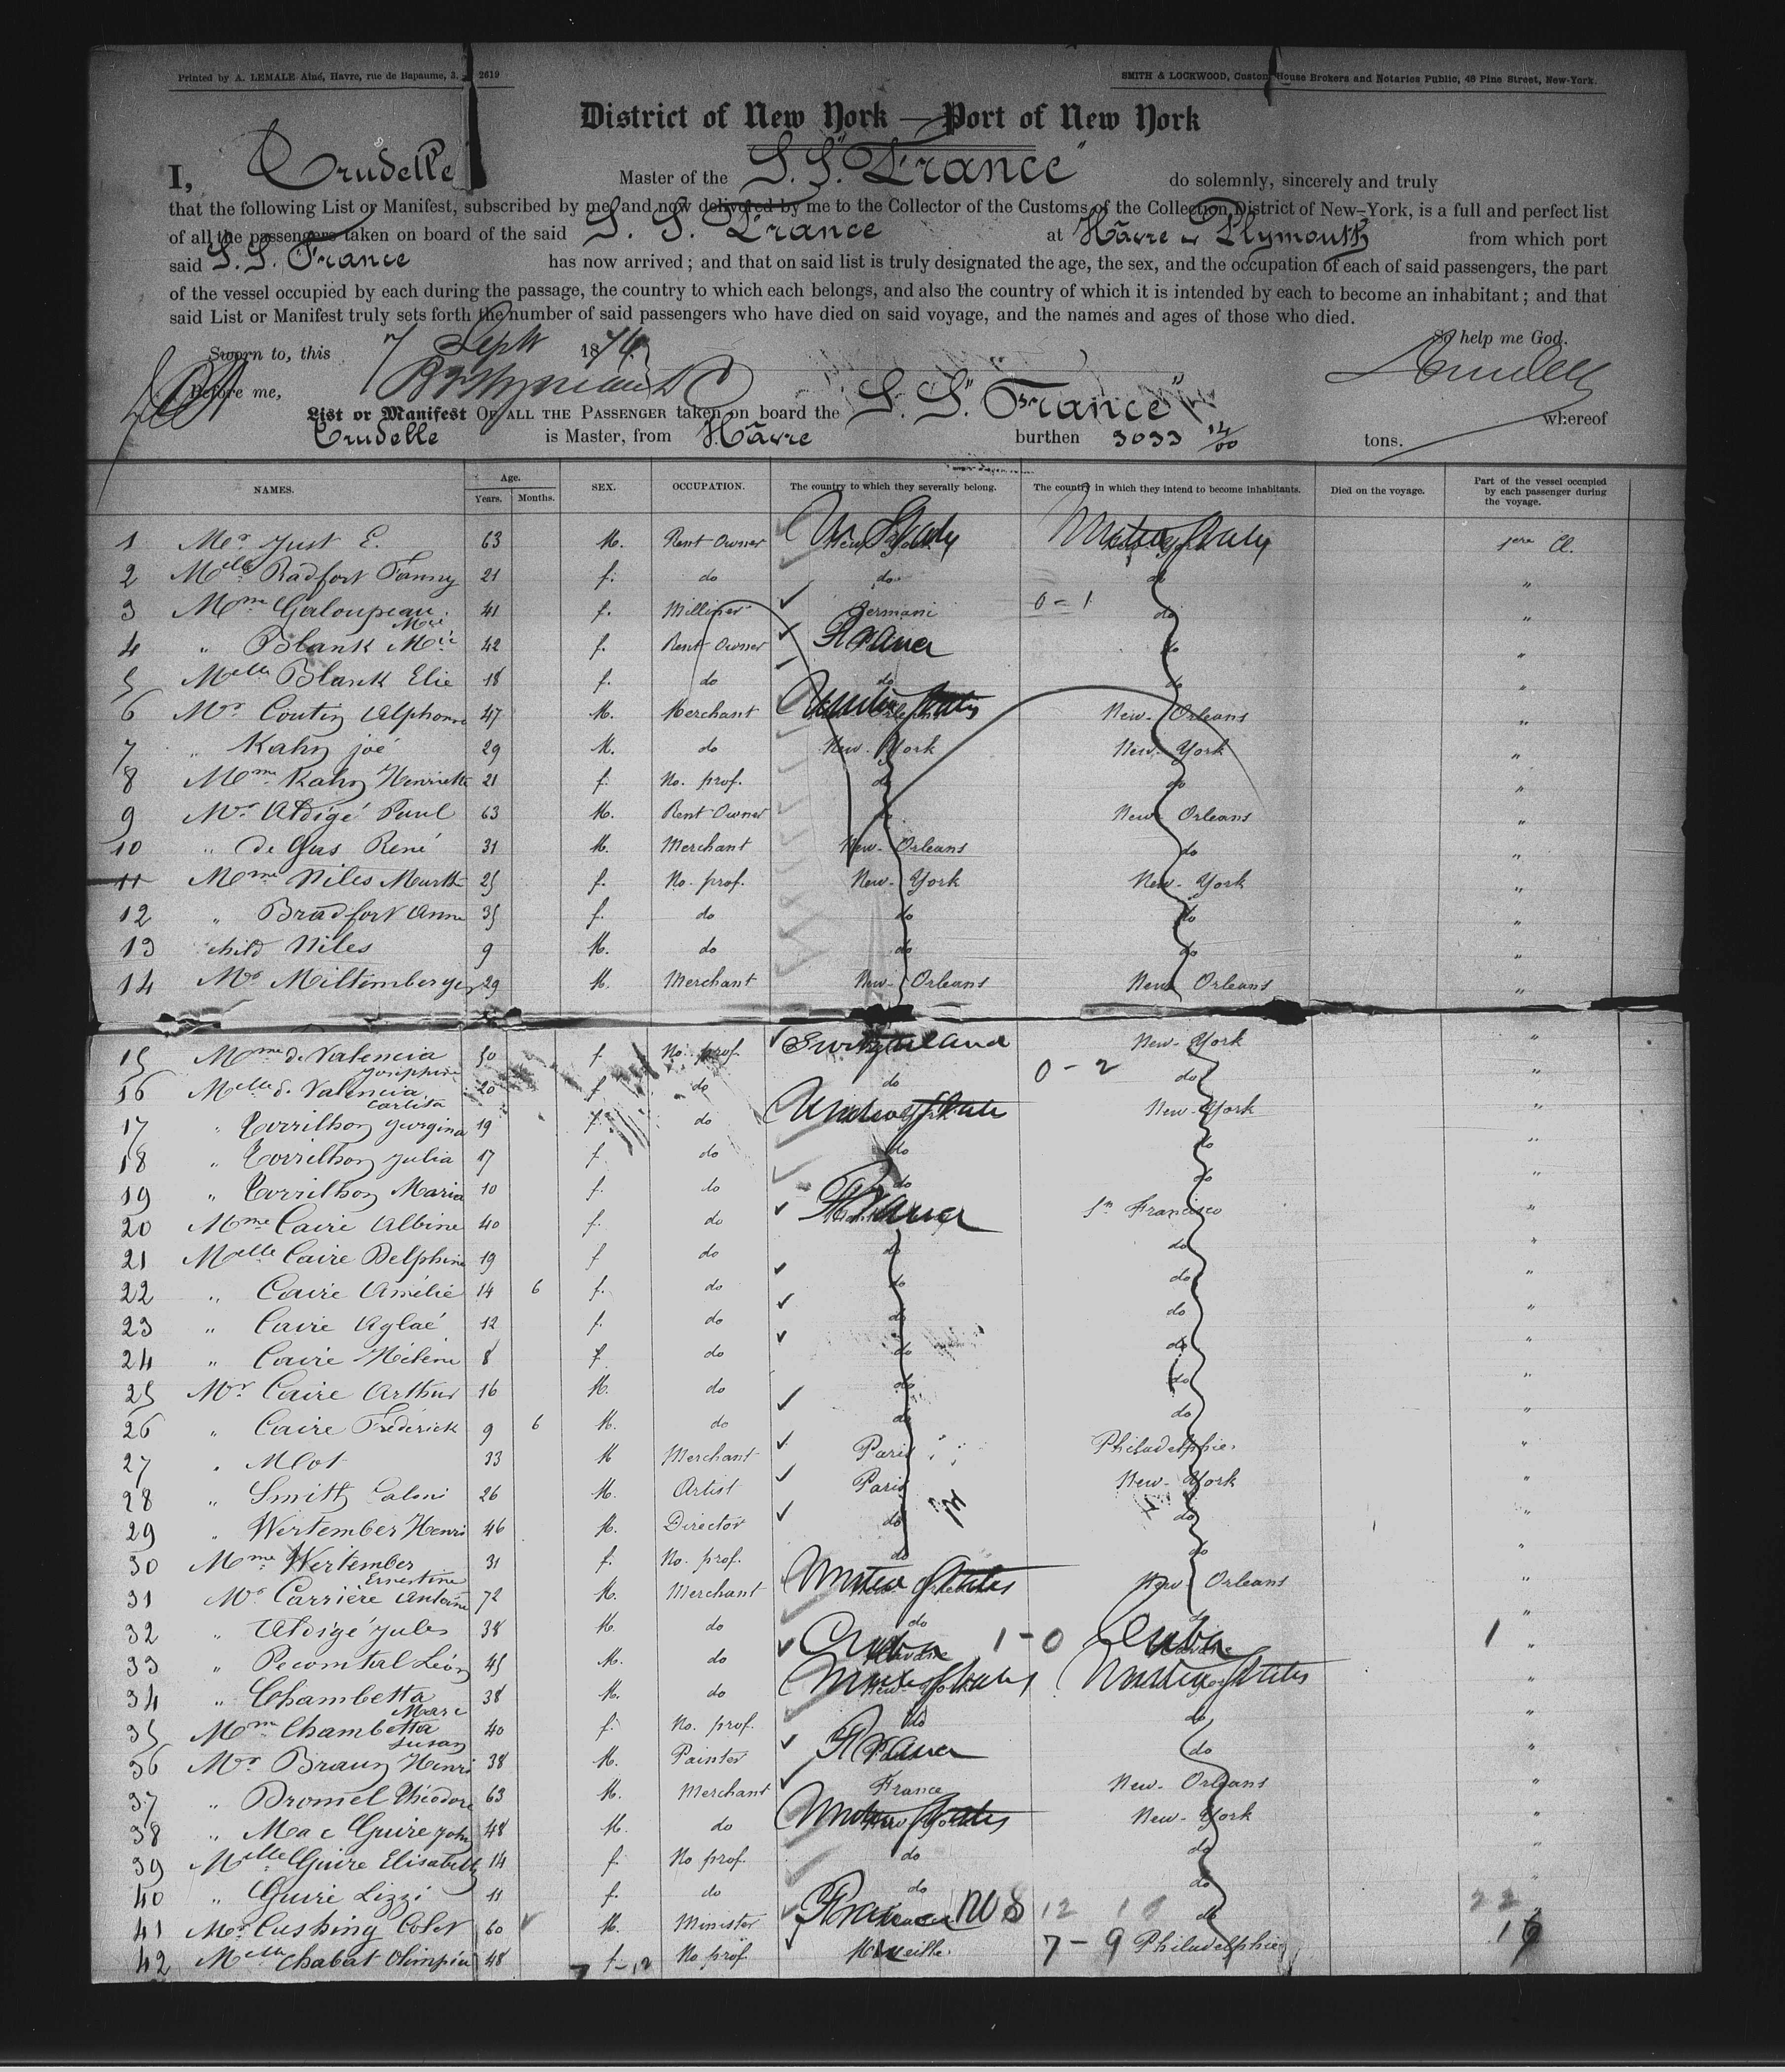 Printed by A. LEMALE Aîné, Havre, rue de Bapaume, 3. 2619
SMITH & LOCKWOOD, Custom House Brokers and Notaries Public, 48 Pine Street, New-York.
District of New York — Port of New York
I, Trudelle Master of the S. S. "France" do solemnly, sincerely and truly
that the following List or Manifest, subscribed by me, and now delivered by me to the Collector of the Customs of the Collection District of New-York, is a full and perfect list
of all the passengers taken on board of the said S. S. France at Hâvre & Plymouth from which port
said S. S. France has now arrived; and that on said list is truly designated the age, the sex, and the occupation of each of said passengers, the part
of the vessel occupied by each during the passage, the country to which each belongs, and also the country of which it is intended by each to become an inhabitant; and that
said List or Manifest truly sets forth the number of said passengers who have died on said voyage, and the names and ages of those who died.
So help me God.
Sworn to, this 7 Sept 1876 Trudelle
Before me,
List or Manifest OF ALL THE PASSENGER taken on board the S. S. "France" whereof
Trudelle is Master, from Hâvre burthen 3033 12/00 tons.
NAMES. Age. Years. Months. SEX. OCCUPATION. The country to which they severally belong. The country in which they intend to become inhabitants. Died on the voyage. Part of the vessel occupied by each passenger during the voyage.
1 Mr Just E. 63 M. Rent Owner Un. States United States 1ere Cl.
2 Melle Radfort Fanny 21 f. do do do "
3 Mme Galoupeau Mrie 41 f. Milliner Germani 0-1 do "
4 " Blank Mie 42 f. Rent Owner France do "
5 Melle Blank Elie 18 f. do do do "
6 Mr Coutin Alphonse 47 M. Merchant United States New-Orleans "
7 " Kahn joé 29 M. do New-York New-York "
8 Mme Kahn Henriette 21 f. No. prof. do do "
9 Mr Aldigé Paul 63 M. Rent Owner New Orleans "
10 " de Gas René 31 M. Merchant New-Orleans do "
11 Mme Niles Marth 25 f. No. prof. New-York New-York "
12 " Bradfort Anne 35 f. do do do "
13 child Niles 9 M. do do do "
14 Mr Miltemberger 29 M. Merchant New-Orleans New Orleans "
15 Mme de Valencia Josephine 50 f No. prof. Switzerland New-York "
16 Melle de Valencia Carlita 20 f do do 0-2 do "
17 " Torrilhon Georgina 19 f. do United State New-York "
18 " Torrilhon Julia 17 f do do do "
19 " Torrilhon Maria 10 f. do do do "
20 Mme Caire Albine 40 f. do France Sn Francisco "
21 Melle Caire Delphine 19 f do do do "
22 " Caire Amélie 14 6 f. do do do "
23 " Caire Aglaé 12 f. do do do "
24 " Caire Hélène 8 f. do do do "
25 Mr Caire Arthur 16 M. do do do "
26 " Caire Frederick 9 6 M. do do do "
27 " Mlot 33 M Merchant Paris Philadelphie "
28 " Smith 26 M. Artist Paris New-York "
29 " Wertember Henri 46 M. Director do do "
30 Mme Wertember Ernestine 31 f. No. prof. do do "
31 Mr Carrière Antoine 72 M. Merchant United States New Orleans "
32 " Aldigé Jules 38 M. do do "
33 " Pecomtal Léon 45 M. do Cuba 1-0 Cuba 1 "
34 " Chambetta Marc 38 M. do United States United States "
35 Mme Chambetta Susan 40 f. No. prof. do do "
36 Mr Braun Henri 38 M. Painter France do "
37 " Bromel Théodore 63 M. Merchant France New-Orleans "
38 " Mac Guire John 48 M. do United States New-York "
39 Melle Guire Elisabeth 14 f. No prof. do do "
40 " Guire Lizzi 11 f. do do do "
41 Mr Cushing Coler 60 M. Minister France do
42 Melle Chabat Olimpia 48 f No prof. 7-9 Philadelphie